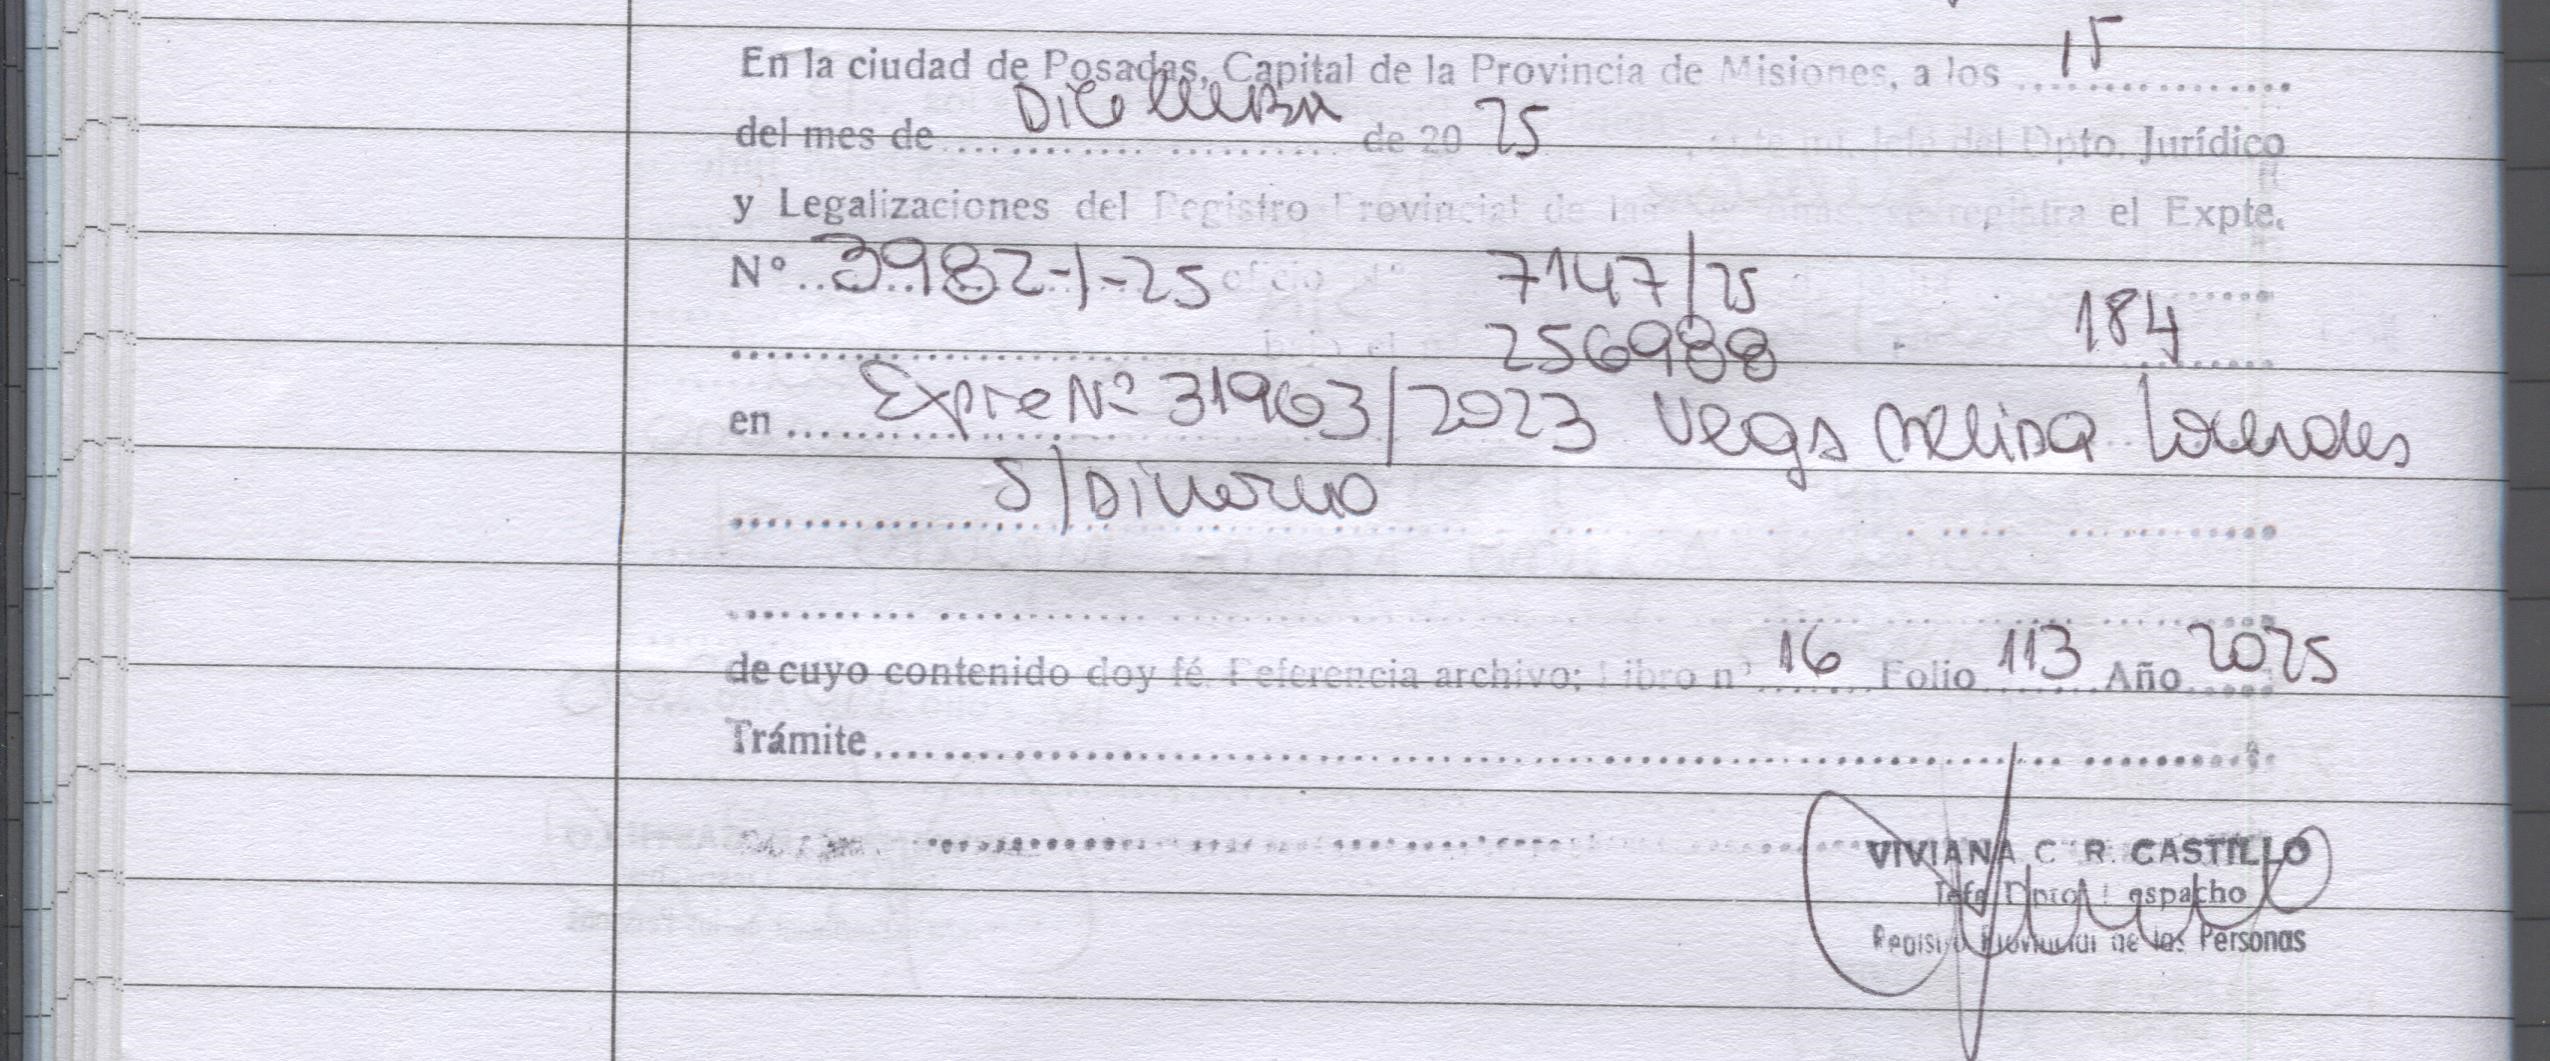 En la ciudad de Posadas, Capital de la Provincia de Misiones, a los 15
del mes de Diciembre de 20 25 del Dpto. Jurídico
y Legalizaciones del Registro Provincial de registra el Expte.
Nº 3982-1-25 oficio Nº 7147/25
256988 184
en Expte Nº 31963/2023 Vega Melisa Lourdes
S/Divorcio
de cuyo contenido doy fé. Referencia archivo; Libro nº 16 Folio 113 Año 2025
Trámite
VIVIANA C. R. CASTILLO
Jefe Dpto. Despacho
Registro Provincial de las Personas